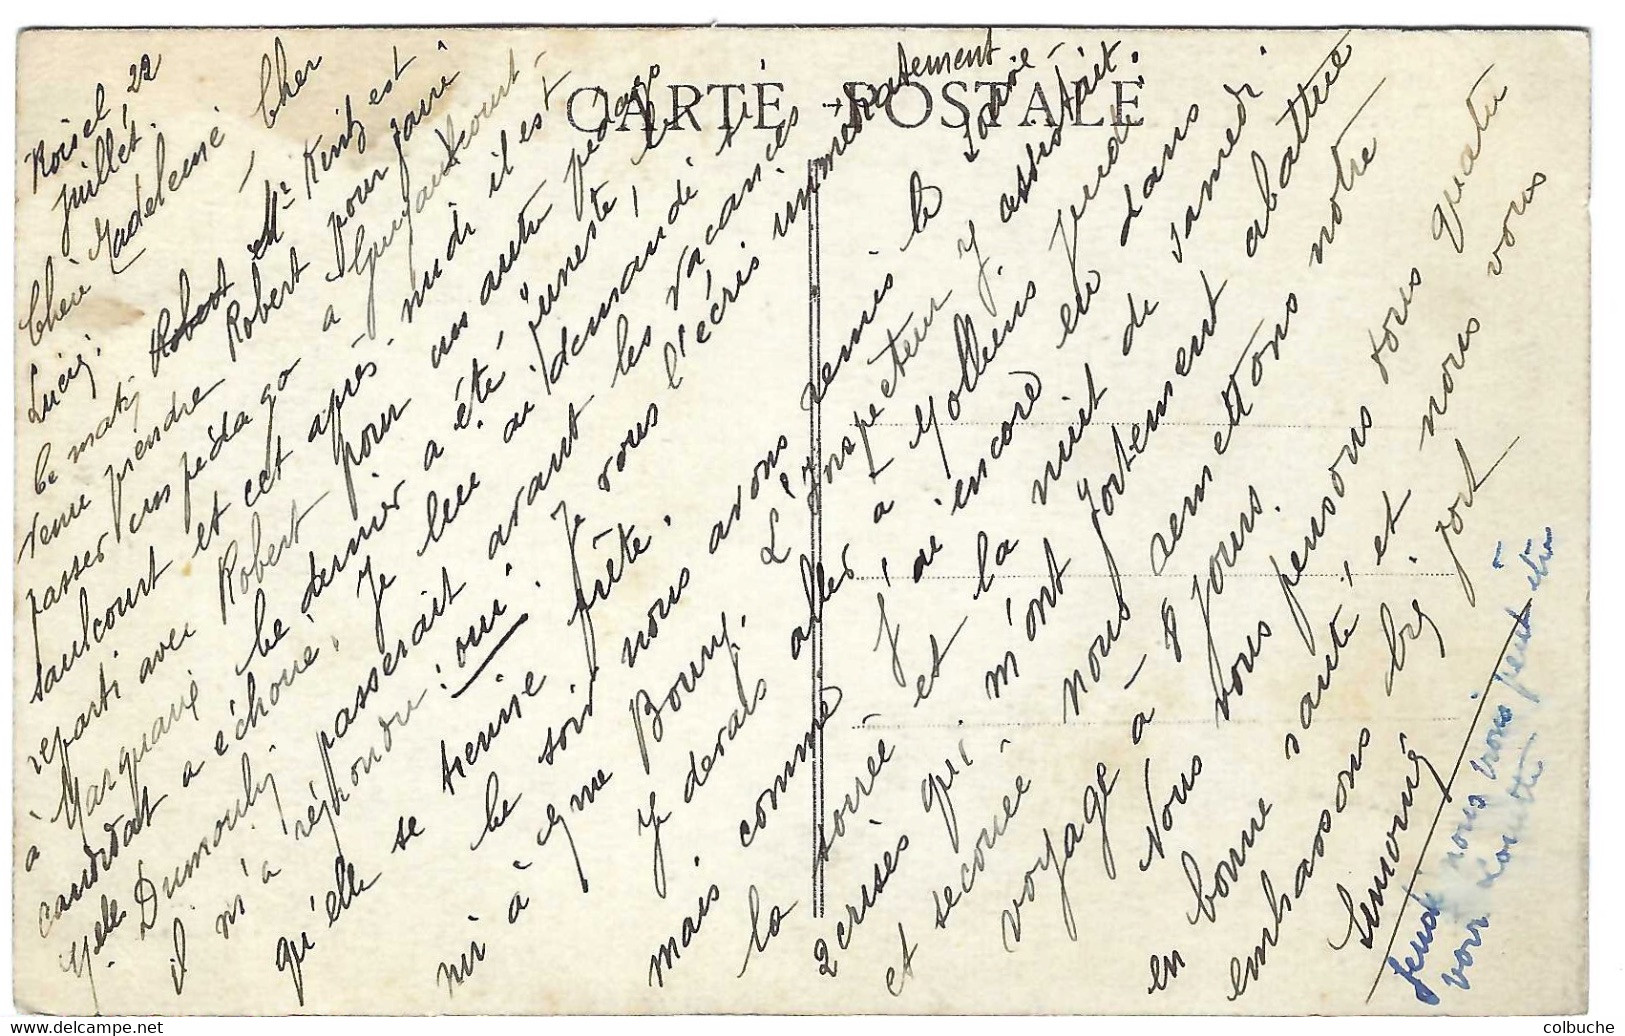 CARTE POSTALE
Roisel, 22
juillet.
Chère Madeleine Cher
Lucien.
Ce matin Robert Mr Kintz est
venu prendre Robert pour faire
passer un pédago à Guyancourt-
saulcourt et cet après-midi il est
reparti avec Robert pour un autre pédago
à Marquaix Le dernier a été funeste, le
candidat a échoué. Je lui ai demandé si
Melle Dumoulin passerait avant les vacances
il m'a répondu : oui. Je vous l'écris immédiatement
qu'elle se tienne prête.
Ce soir nous avons remis le
à Mme Bourg. L'Inspecteur y assistait.
Je devais aller à Moliens jeudi
mais comme j'ai encore eu dans
la soirée et la nuit de samedi
2 crises qui m'ont fortement abattue
et secouée nous remettons notre
voyage à 8 jours.
Nous vous pensons tous quatre
en bonne santé, et nous vous
embrassons bien fort
Simone
Jeudi nous irons peut-être
voir
colbuche